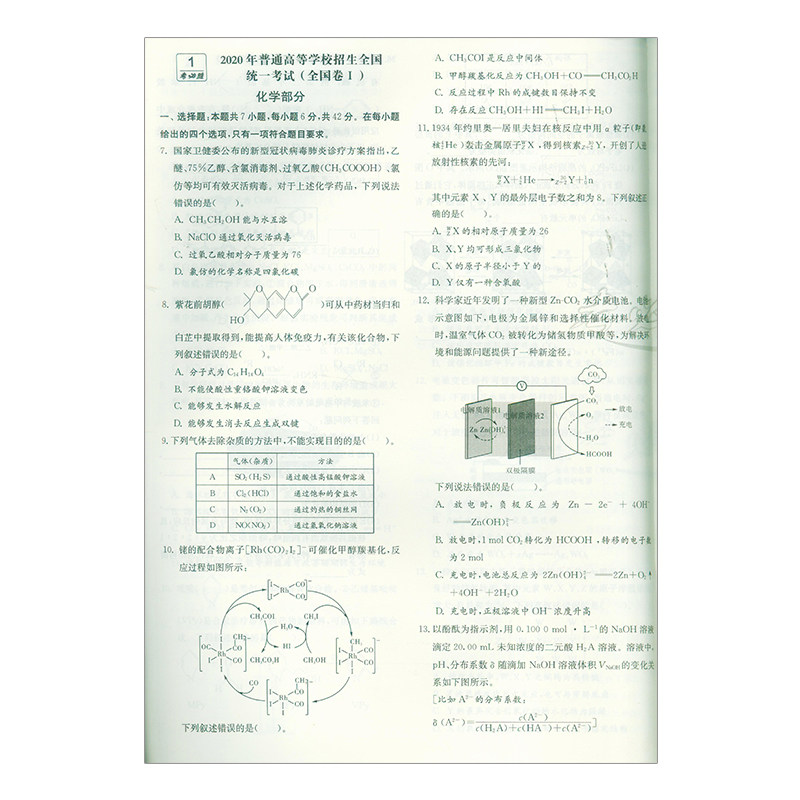 1
2020年普通高等学校招生全国
统一考试(全国卷Ⅰ)
化学部分
一、选择题:本题共7小题,每小题6分,共42分。在每小题
给出的四个选项,只有一项符合题目要求。
7. 国家卫健委公布的新型冠状病毒肺炎诊疗方案指出,乙
醚、75%乙醇、含氯消毒剂、过氧乙酸(CH₃COOOH)、氯
仿等均可有效灭活病毒。对于上述化学药品,下列说法
错误的是( )。
A. CH₃CH₂OH能与水互溶
B. NaClO通过氧化灭活病毒
C. 过氧乙酸相对分子质量为76
D. 氯仿的化学名称是四氯化碳
8. 紫花前胡醇( )可从中药材当归和
O O O
HO
白芷中提取得到,能提高人体免疫力,有关该化合物,下
列叙述错误的是( )。
A. 分子式为C₁₄H₁₄O₄
B. 不能使酸性重铬酸钾溶液变色
C. 能够发生水解反应
D. 能够发生消去反应生成双键
9.下列气体去除杂质的方法中,不能实现目的的是( )。
气体(杂质) 方法
A SO₂(H₂S) 通过酸性高锰酸钾溶液
B Cl₂(HCl) 通过饱和的食盐水
C N₂(O₂) 通过灼热的铜丝网
D NO(NO₂) 通过氢氧化钠溶液
10. 铑的配合物离子[Rh(CO)₂I₂]⁻可催化甲醇羰基化,反
应过程如图所示:
CH₃COI CH₃I
H₂O
HI
CH₃CO₂H CH₃OH
CO
下列叙述错误的是( )。
A. CH₃COI是反应中间体
B. 甲醇羰基化反应为CH₃OH+CO══CH₃CO₂H
C. 反应过程中Rh的成键数目保持不变
D. 存在反应CH₃OH+HI══CH₃I+H₂O
11. 1934年约里奥—居里夫妇在核反应中用α粒子(即氦
核⁴₂He)轰击金属原子ᵂ_ZX,得到核素³⁰_{Z+2}Y,开创了人造
放射性核素的先河:
ᵂ_ZX+⁴₂He⟶³⁰_{Z+2}Y+¹₀n
其中元素X、Y的最外层电子数之和为8。下列叙述正
确的是( )。
A. ᵂ_ZX的相对原子质量为26
B. X、Y均可形成三氯化物
C. X的原子半径小于Y的
D. Y仅有一种含氧酸
12. 科学家近年发明了一种新型Zn-CO₂水介质电池。电池
示意图如下,电极为金属锌和选择性催化材料。放电
时,温室气体CO₂被转化为储氢物质甲酸等,为解决环
境和能源问题提供了一种新途径。
V
CO₂
电解质溶液1
电解质溶液2
Zn Zn(OH)₄²⁻
CO₂
O₂
H₂O
HCOOH
放电
充电
双极隔膜
下列说法错误的是( )。
A. 放电时,负极反应为Zn-2e⁻+4OH⁻
══Zn(OH)₄²⁻
B. 放电时,1 mol CO₂转化为HCOOH,转移的电子数
为2 mol
C. 充电时,电池总反应为2Zn(OH)₄²⁻══2Zn+O₂↑
+4OH⁻+2H₂O
D. 充电时,正极溶液中OH⁻浓度升高
13. 以酚酞为指示剂,用0.100 0 mol·L⁻¹的NaOH溶液
滴定20.00 mL未知浓度的二元酸H₂A溶液。溶液中,
pH、分布系数δ随滴加NaOH溶液体积V_NaOH的变化关
系如下图所示。
[比如A²⁻的分布系数:
δ(A²⁻)=c(A²⁻)/(c(H₂A)+c(HA⁻)+c(A²⁻))]